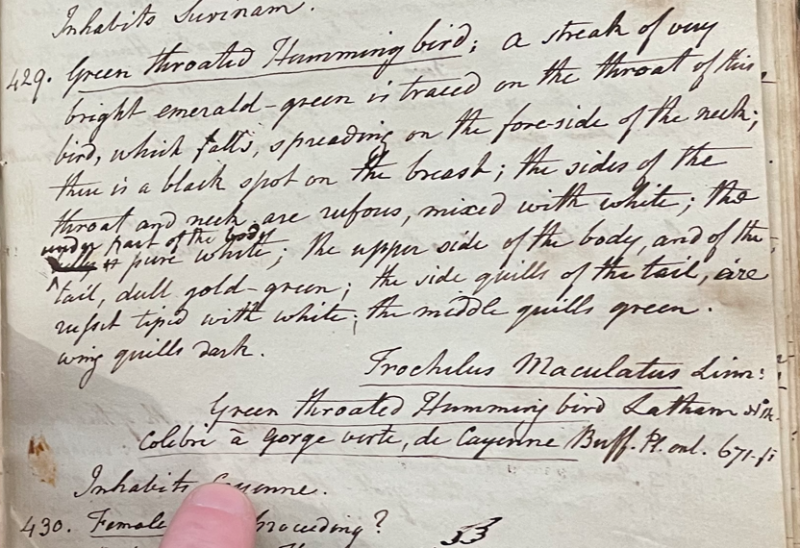 Inhabits Surinam.
429. Green throated Humming bird; a streak of very
bright emerald-green is traced on the throat of this
bird, which falls, spreading on the fore-side of the neck;
there is a black spot on the breast; the sides of the
throat and neck are rufous, mixed with white; the
under part of the body
pure white; the upper side of the body, and of the
tail, dull gold-green; the side quills of the tail, are
russet tiped with white; the middle quills green.
wing quills dark.
Trochilus Maculatus Linn:
Green throated Humming bird Latham
Colibri à gorge verte, de Cayenne Buff. Pl. enl. 671.
Inhabits Cayenne.
430. Female
53